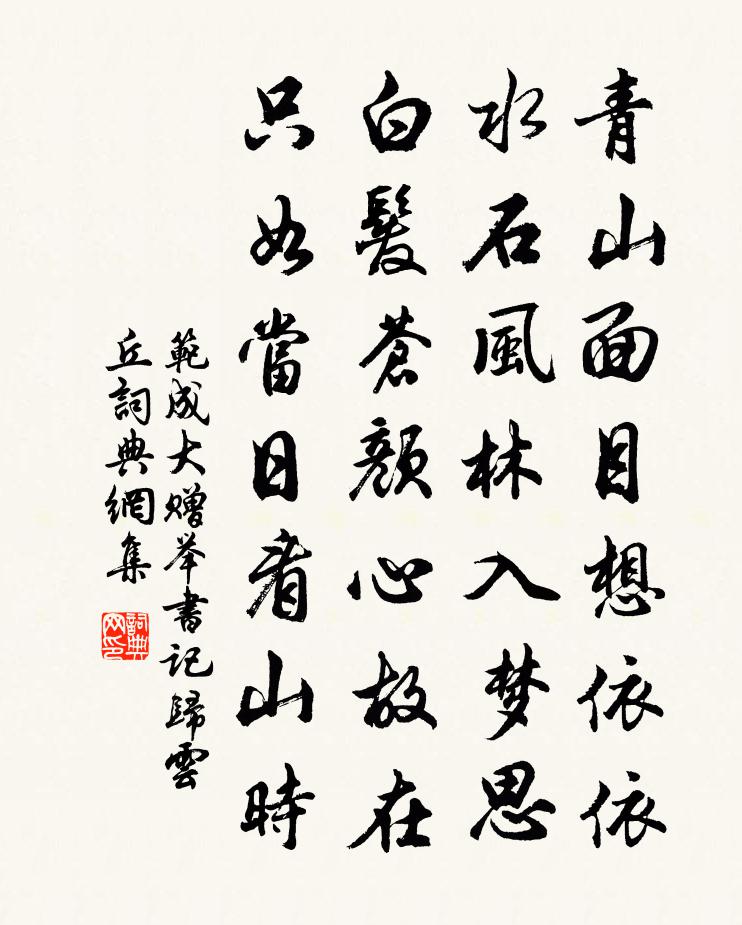 青山面目想依依
水石風林入梦思
白髮蒼顏心故在
只如當日看山時
範成大赠举書记歸雲
丘詞典網集
詞典网印